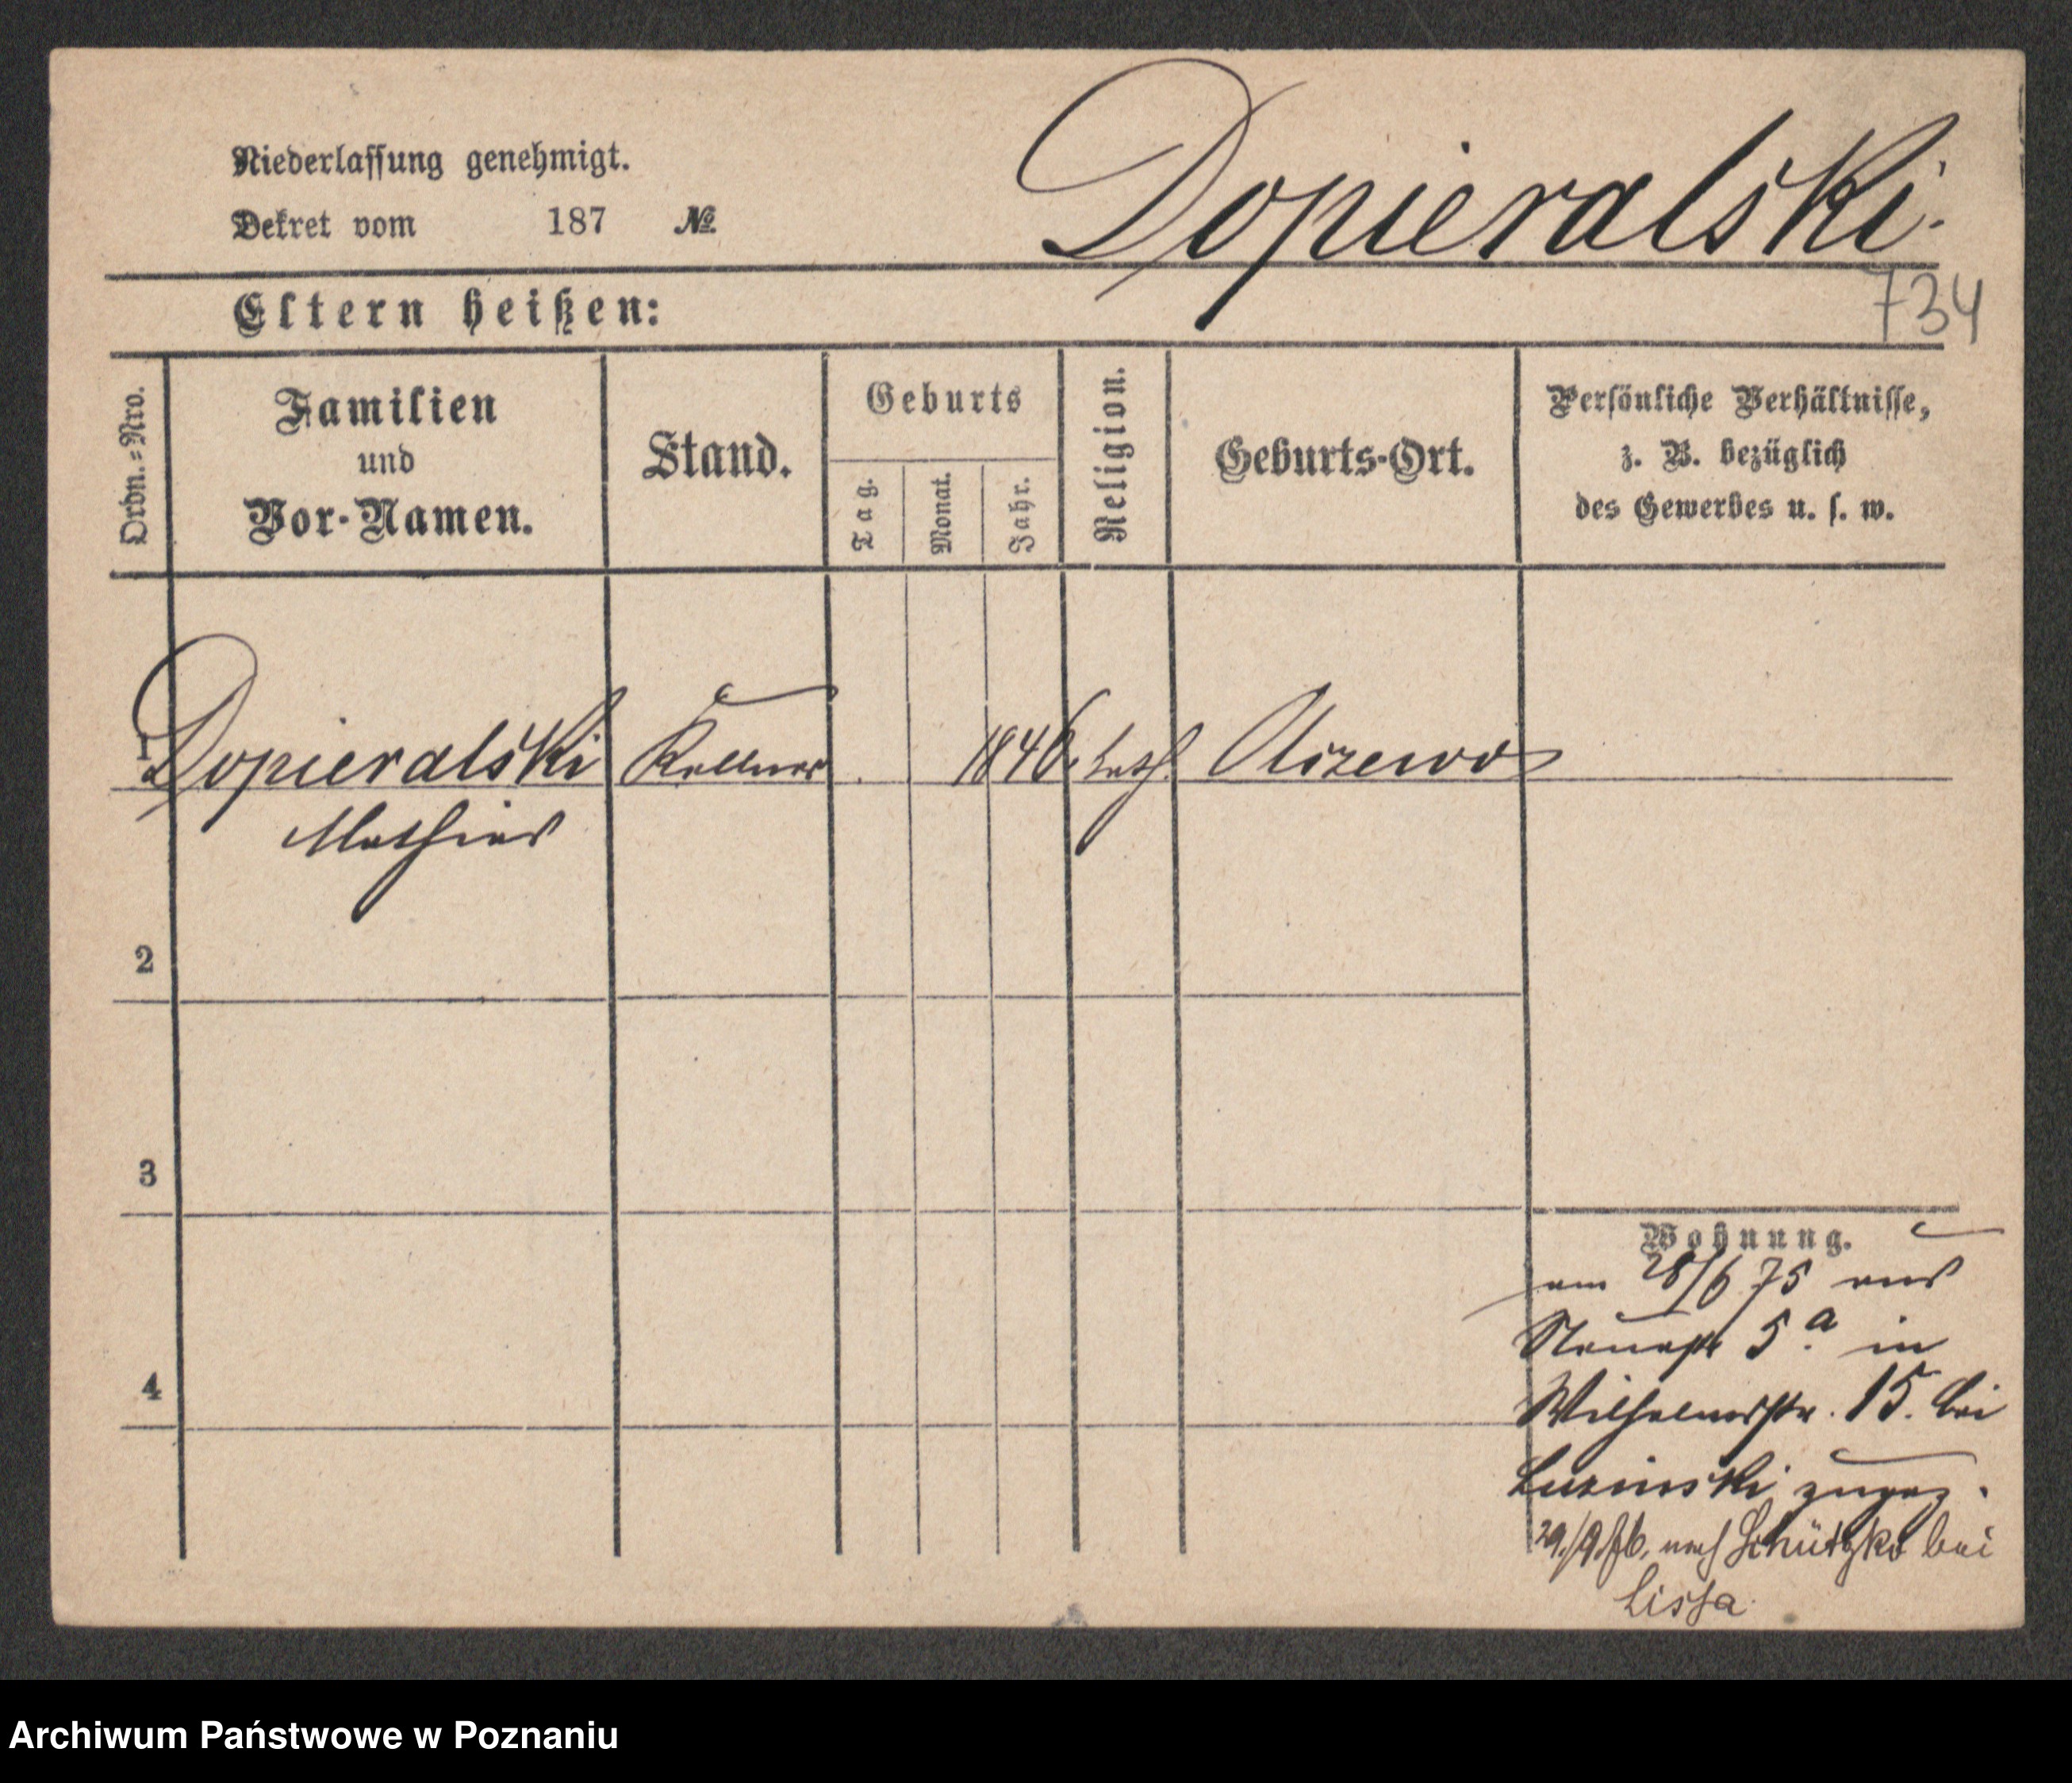 Niederlassung genehmigt.
Dekret vom 187 No
Dopieralski.
734
Eltern heißen:
Ordn.=Nro.
Familien
und
Vor-Namen.
Stand.
Geburts
Tag.
Monat.
Jahr.
Religion.
Geburts-Ort.
Persönliche Verhältnisse,
z. B. bezüglich
des Gewerbes u. s. w.
1 Dopieralski Kellner 1846. kath. Olszewo
Mathias
2
3
4
Wohnung.
am 28/6 75 aus
Neuestr 5.a in
Wilhelmsstr. 15. bei
zugez.
29./9. 76. nach bei
Lissa